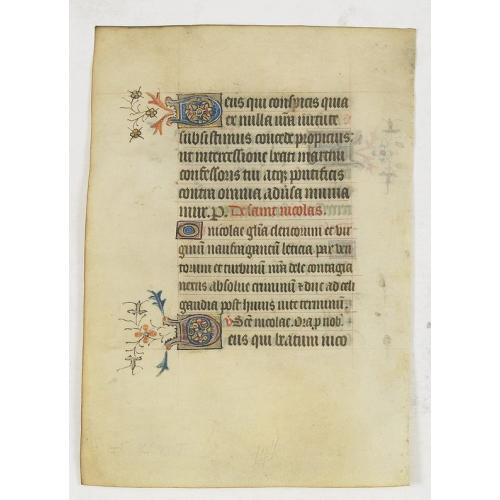 Deus qui conspicis quia
ex nulla nr̃a uirtute
subsistimus concede propicius:
ut intercessione beati martini
confessoris tui atq; pontificis
contra omnia adũsa munia
mur. P. De saint nicolas.
O nicolae gl̃ia clericorum et uir
ginũ naufragantiũ leticia pax uen
torum et turbinũ nr̃a dele contagia
nexus absolue criminũ & duc ad celi
gaudia post huius uite terminũ.
V Sc̃e nicolae. Ora p nob̃.
Deus qui beatum nico